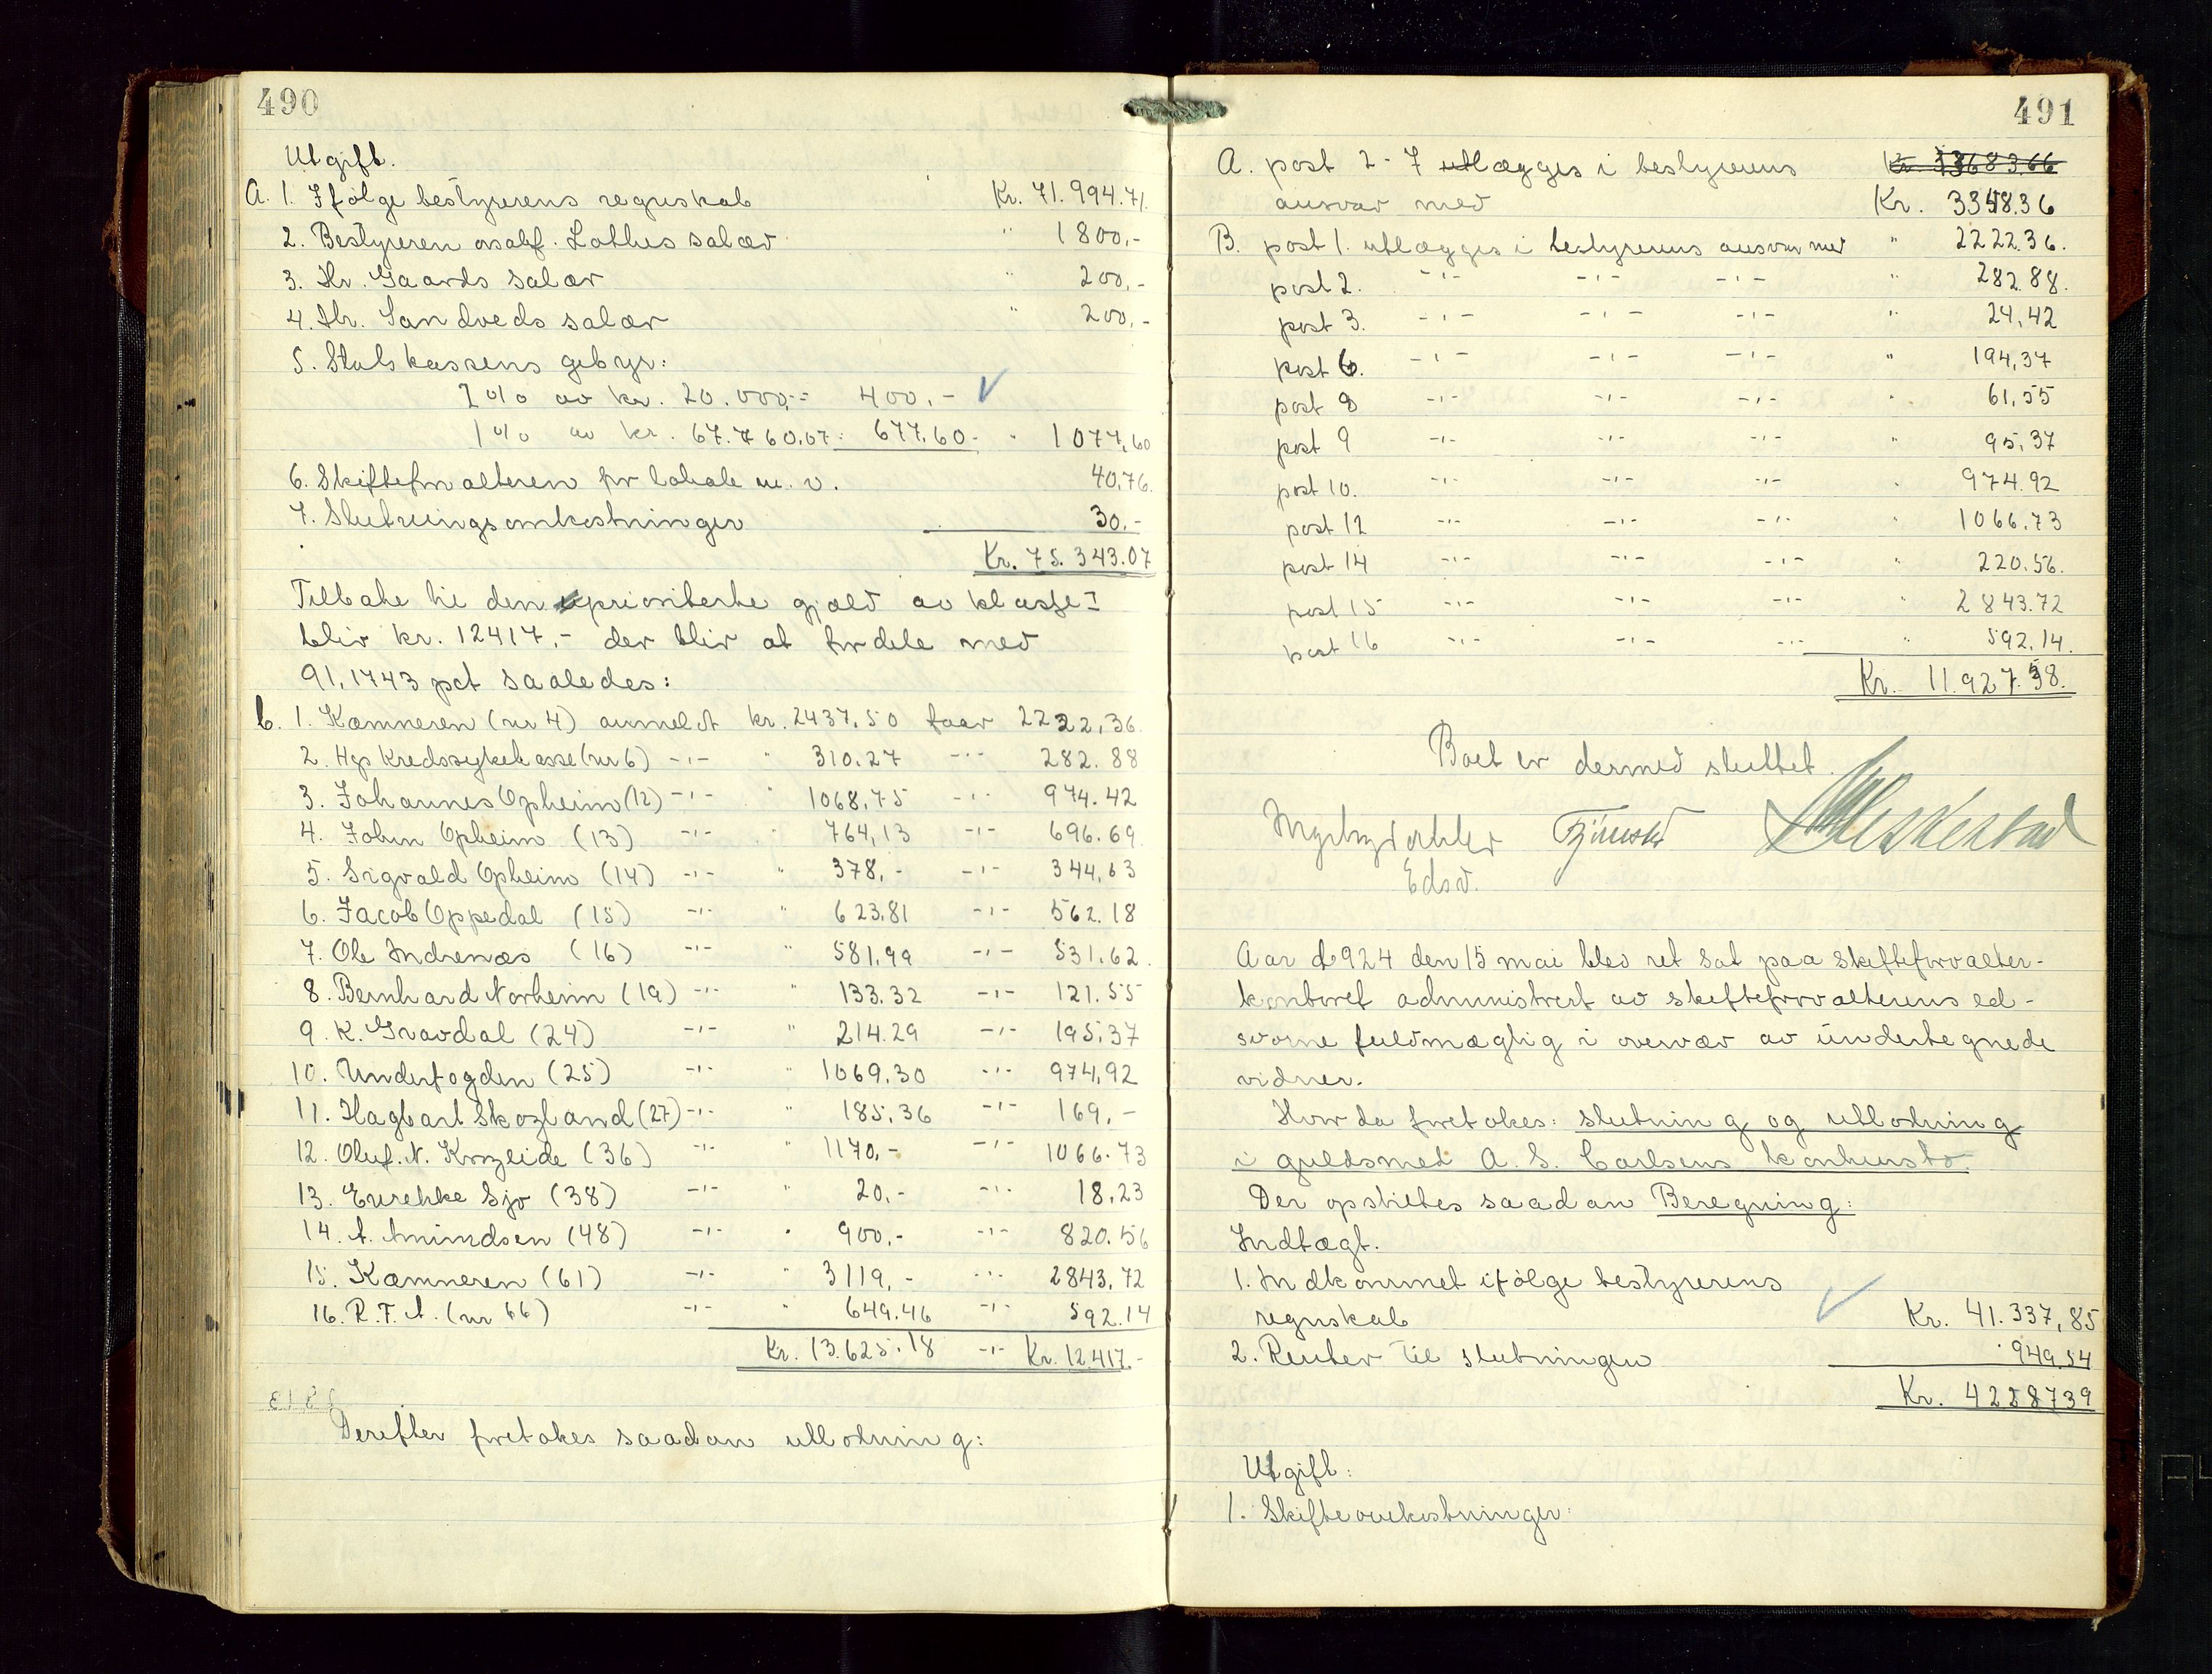 490
Utgift.
A. 1. Ifölge bestyrerens regnskab Kr. 71.994.71.
2. Bestyreren osakf. Lothes salær " 1800,-
3. Hr. Gaards salær " 200,-
4. Hr. Sandveds salær " 200,-
5. Statskassens gebyr:
2 % av kr. 20.000,-= 400,-
1 % av kr. 67.760,07= 677,60- " 1077,60
6. Skifteforvalteren for lokale m. v. 40,76.
7. Slutningsomkostninger 30,-
Kr. 75.343.07
Tilbake til den uprioriterte gjæld av klasse I
blir kr. 12417,- der blir at fordele med
91,1743 pct saaledes:
b. 1. Kæmneren (nr 4) anmeldt kr. 2437,50 faar 2222,36
2. Hgs Kredssykekasse (nr 6) -,- " 310.27 -,- 282.88
3. Johannes Opheim (12) -,- " 1068,75 -,- 974.42
4. John Opheim (13) -,- " 764,13 -,- 696.69
5. Sigvald Opheim (14) -,- " 378,- -,- 344,63
6. Jacob Oppedal (15) -,- " 623.81 -,- 562.18
7. Ole Indrenæs (16) -,- " 581,99 -,- 531,62.
8. Bernhard Norheim (19) -,- " 133.32 -,- 121.55
9. K. Gravdal (24) -,- " 214.29 -,- 195,37
10. Underfogden (25) -,- " 1069,30 -,- 974,92
11. Hagbart Skogland (27) -,- " 185,36 -,- 169,-
12. Oluf. N. Krogleide (36) -,- " 1170,- -,- 1066.73
13. Eurehke Sjo (38) -,- " 20,- -,- 18,23
14. A. Amundsen (48) -,- " 900,- -,- 820.56
15. Kæmneren (61) -,- " 3119,- -,- 2843,72
16. R. T. A. (nr 66) -,- " 649,46 -,- 592.14
Kr. 13.625.18 -,- Kr. 12.417.-
Derefter foretokes saadan utlodning:
491
A. post 2-7 utlægges i bestyrerens Kr 33683.66
ansvar med Kr. 3348.36
B. post 1. utlægges i bestyrerens ansvar med " 2222.36.
post 2. -,- -,- -,- " 282.88.
post 3. -,- -,- -,- " 24,42
post 6. -,- -,- -,- " 194,37
post 8 -,- -,- -,- " 61,55
post 9 -,- -,- -,- " 95,37
post 10. -,- -,- -,- " 974.92
post 12 -,- -,- -,- " 1066.73
post 14 -,- -,- -,- " 220.56.
post 15 -,- -,- -,- " 2843.72
post 16 -,- -,- -,- " 592,14.
Kr. 11.927.38.
Boet er dermed sluttet.
Edsv.
Aar 1924 den 15 mai blev ret sat paa skifteforvalter-
kontoret administrert av skifteforvalterens ed-
svorne fuldmægtig i overvær av undertegnede
vidner.
Hvor da foretokes: slutning og utlodning
i guldsmed A. S. Carlsens konkursbo.
Der opstilles saadan Beregning:
Indtægt.
1. Indkommet ifölge bestyrerens
regnskab Kr. 41.337,85
2. Renter til slutningen 949,54
Kr. 4228739
Utgift:
1. Skifteomkostninger: